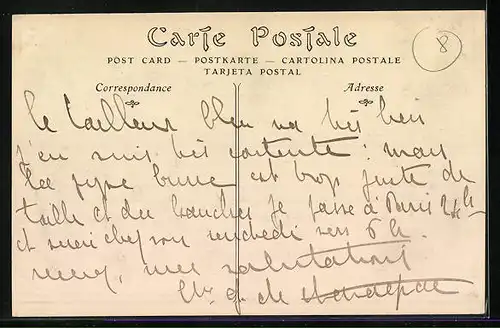 Carte Postale
8
POST CARD — POSTKARTE — CARTOLINA POSTALE
TARJETA POSTAL
Correspondance
Adresse
le tailleur bleu va très bien
j'en suis très contente : mais
la jupe brune est trop juste de
taille et des hanches je passe à Paris 24h
et serai chez vous vendredi vers 5h.
merci, mes salutations
de